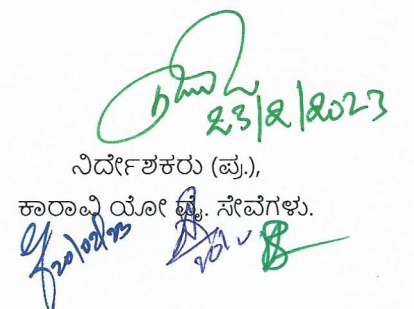 23/2/2023
ನಿರ್ದೇಶಕರು (ಪ್ರ.),
ಕಾರಾವಿ ಯೋ ವೈ. ಸೇವೆಗಳು.
20/02/23